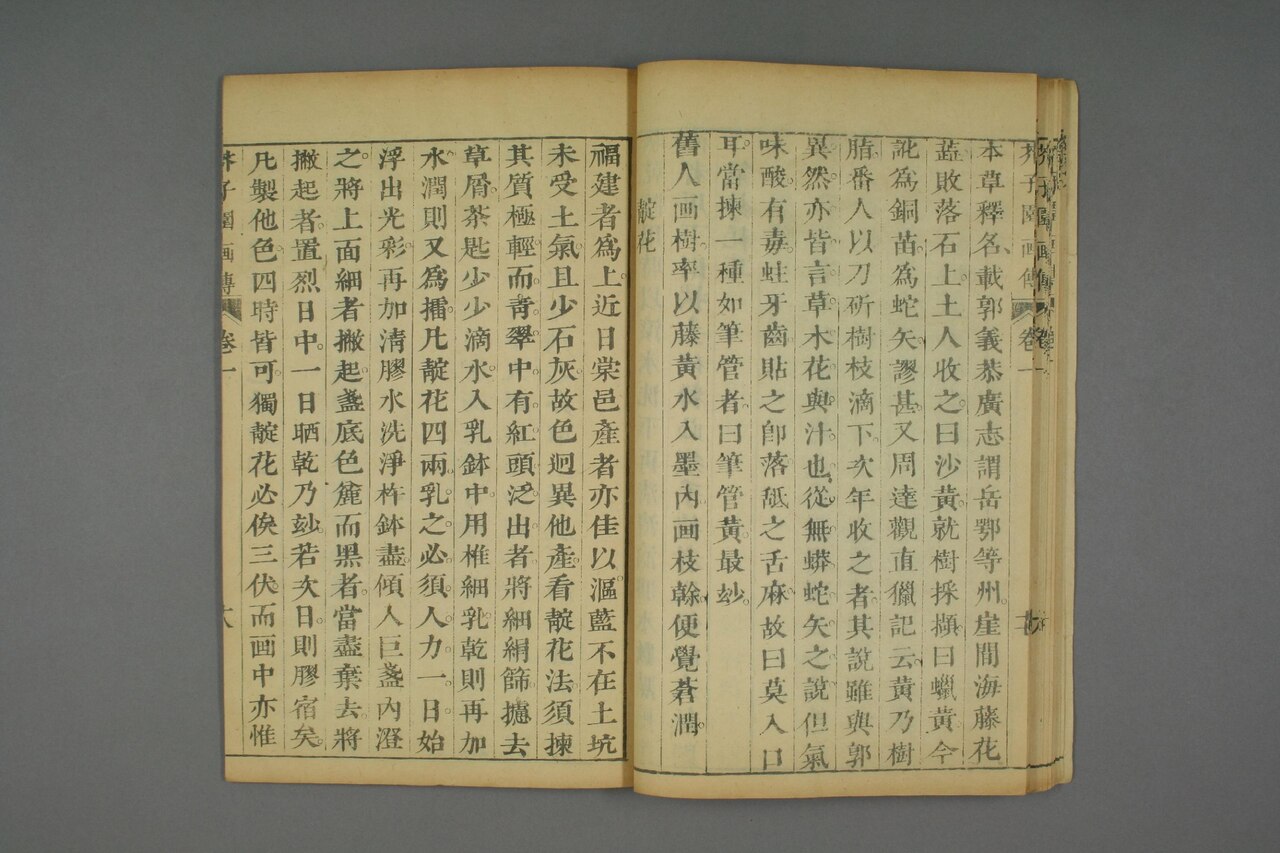 芥子園画傳 卷一
本草釋名載郭義恭廣志謂岳鄂等州崖間海藤花
蕋敗落石上土人收之曰沙黃就樹採擷曰蠟黃今
訛為銅苗為蛇矢謬甚又周達觀直獵記云黃乃樹
脂番人以刀斫樹枝滴下次年收之者其說雖與郭
異然亦皆言草木花與汁也從無蟒蛇矢之說但氣
味酸有毒蛀牙齒貼之卽落舐之舌麻故曰莫入口
耳當揀一種如筆管者曰筆管黃最玅
舊人画樹率以藤黃水入墨內画枝幹便覺蒼潤
靛花
福建者為上近日棠邑產者亦佳以漚藍不在土坑
未受土氣且少石灰故色迥異他產看靛花法須揀
其質極輕而青翠中有紅頭泛出者將細絹篩攄去
草屑茶匙少少滴水入乳鉢中用椎細乳乾則再加
水潤則又為擂凡靛花四兩乳之必須人力一日始
浮出光彩再加清膠水洗淨杵鉢盡傾人巨盞內澄
之將上面細者撇起盞底色麄而黑者當盡棄去將
撇起者置烈日中一日晒乾乃玅若次日則膠宿矣
凡製他色四時皆可獨靛花必俟三伏而画中亦惟
芥子園画傳 卷一